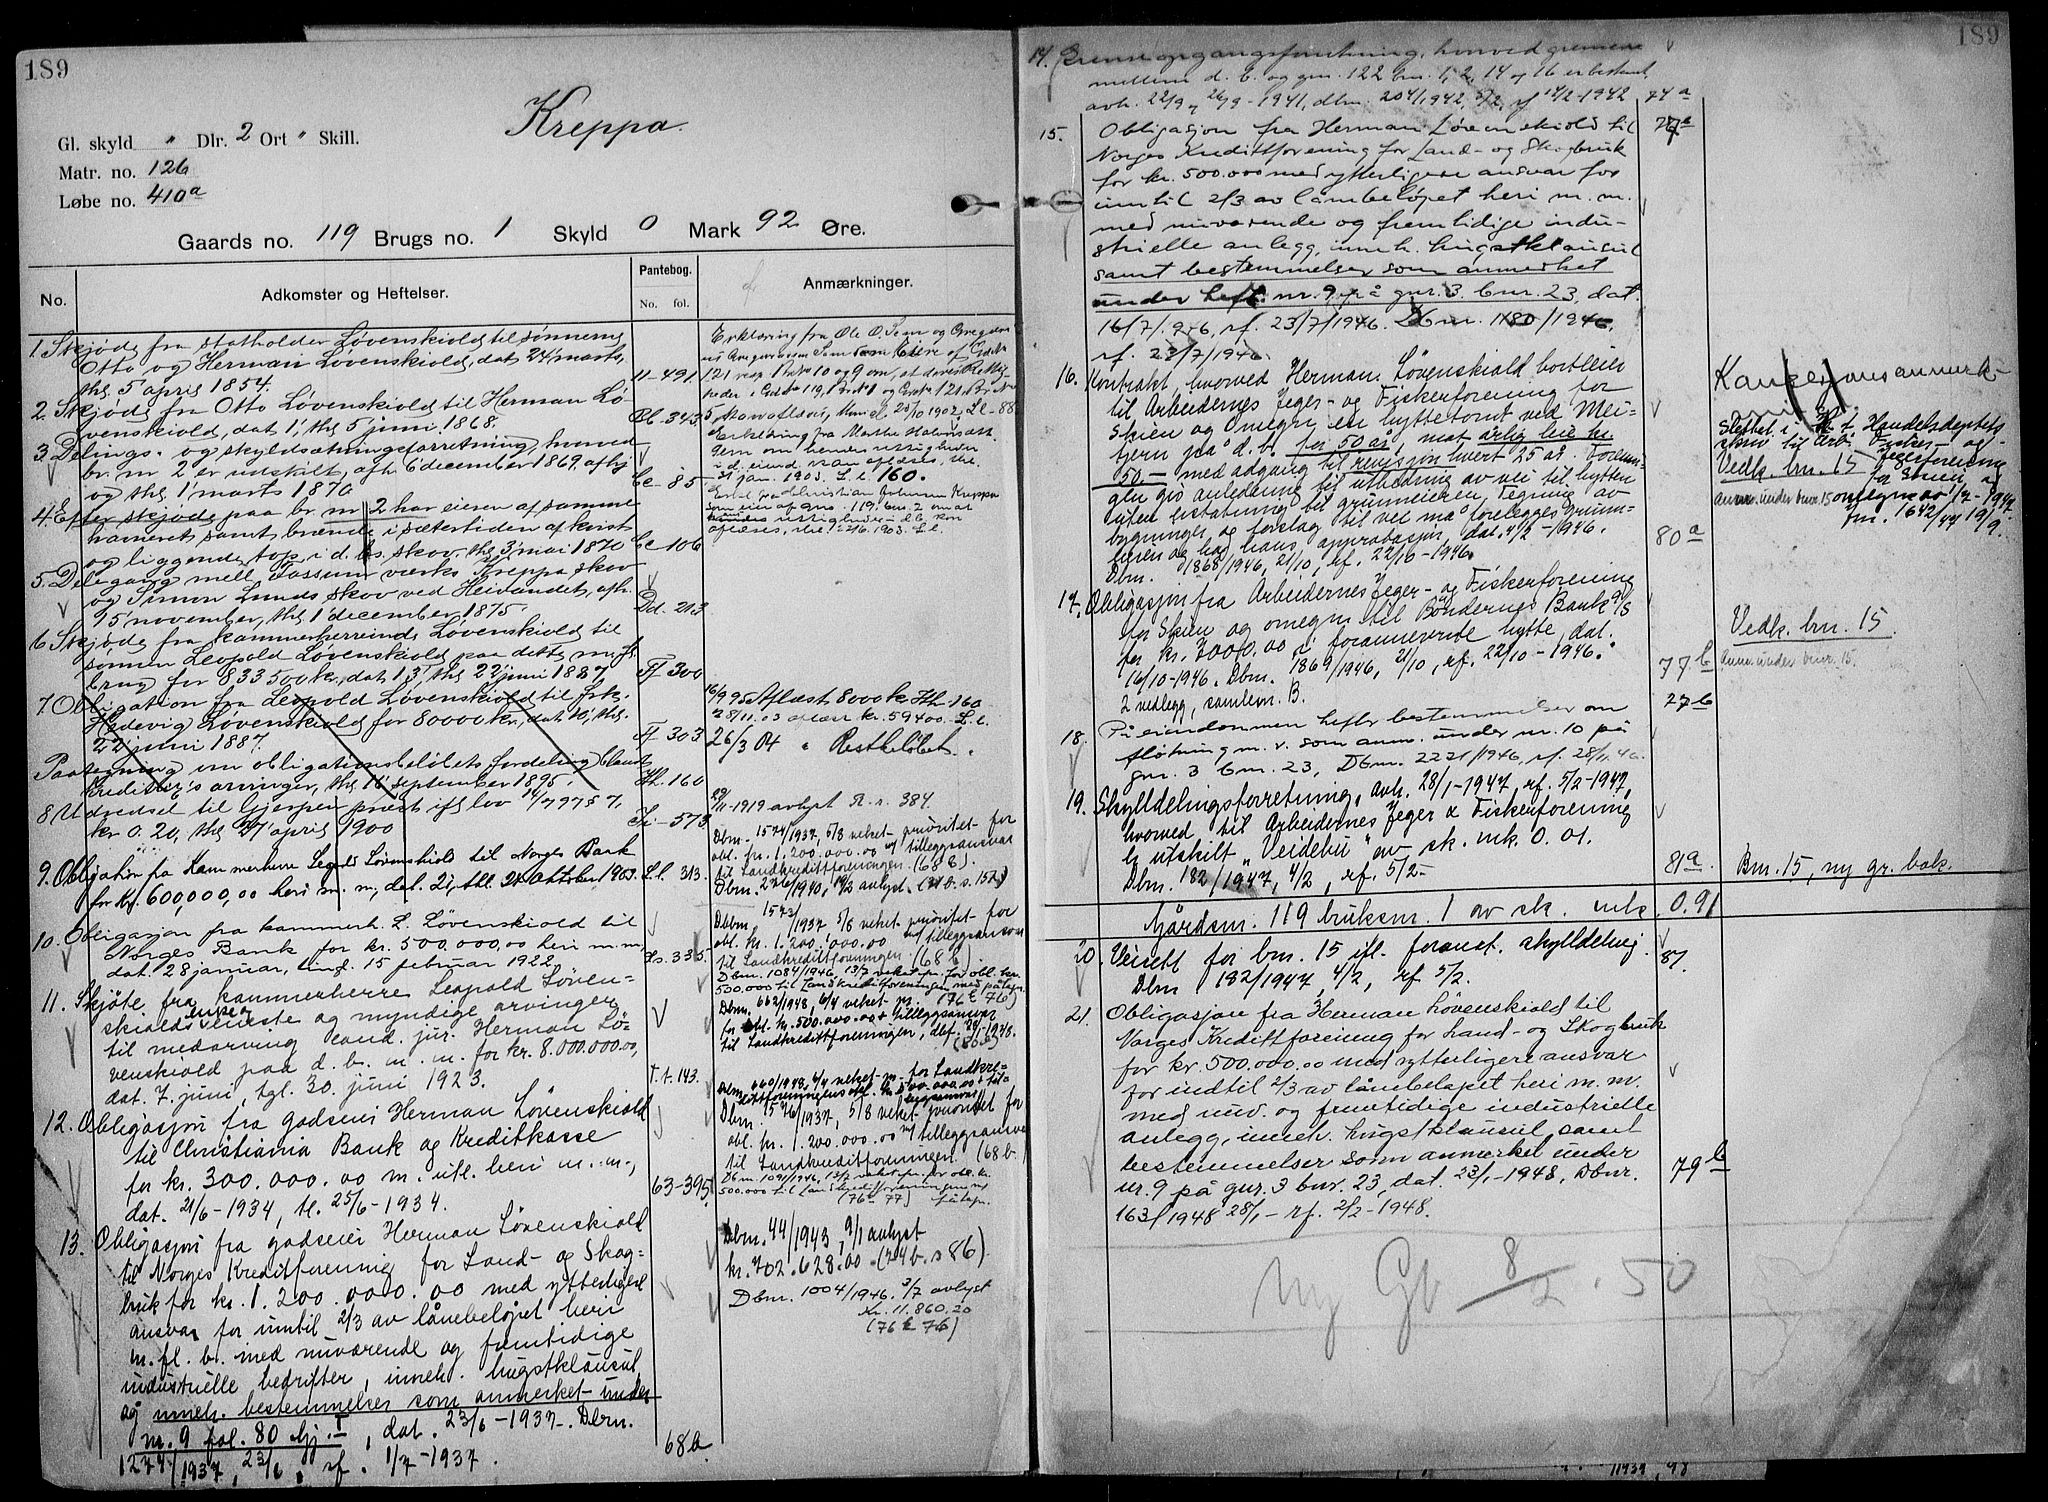 189
Kreppa.
Gl. skyld " Dlr. 2 Ort " Skill.
Matr. no. 126
Løbe no. 410a
Gaards no. 119 Brugs no. 1 Skyld 0 Mark 92 Øre.
No.
Adkomster og Heftelser.
Pantebog.
No. fol.
Anmærkninger.
1. Skjøde fra statholder Løvenskiold til sønnerne
Otto og Herman Løvenskiold, dat. 24 marts,
thl. 5 april 1854.
11-491
2. Skjøde fra Otto Løvenskiold til Herman Lø-
venskiold, dat. 1, thl. 5 juni 1868.
Bb-343
3. Delings- og skyldsætningsforretning, hvorved
br. nr 2 er udskilt, afh. 6 december 1869, afhj.
og thl. 1 marts 1870
Cc-85
4. Efter skjøde paa br. nr 2 har eieren af samme
havneret samt brænde i sætertiden af kvist
og liggende top i d. bs. skov, thl. 3 mai 1870
Cc-106
5. Delegang mell. Fossum værks Kreppa skov
og Simon Lunds skov ved Heivandet, afh.
15 november, thl. 1 december 1875.
Dd. 213
6. Skjøde fra kammerherreinde Løvenskiold til
sønnen Leopold Løvenskiold paa dette m. fl.
brug for 833500 kr., dat. 13, thl. 22 juni 1887
Ff 300
7. Obligation fra Leopold Løvenskiold til frk.
Hedevig Løvenskiold for 80000 kr., dat. 10, thl.
22 juni 1887.
Ff 303
Paategning om obligationsbeløbets fordeling blandt
kreditor's arvinger, thl. 16 september 1895.
Hh. 160
8. Udredsel til Gjerpen præst ifl. lov
kr. 0.20, thl. 27 april 1900
Ii-573
9. Obligation fra Kammerherre Leopold Løvenskiold til Norges Bank
for Kr. 600,000,00 heri m. m., dat. 21, thl. 24 Oktober 1903.
L.l. 313.
10. Obligasjon fra kammerh. L. Løvenskiold til
Norges Bank for kr. 500.000,00 heri m. m.
dat. 28 januar, tingl. 15 februar 1922.
335.
11. Skjøte fra kammerherre Leopold Løven-
skiolds enke og myndige arvinger
til medarving Cand. jur. Herman Lø-
venskiold paa d. b. m. m. for kr. 8.000.000.00,
dat. 7. juni, tgl. 30. juni 1923.
T.t. 143.
12. Obligasjon fra godseier Herman Løvenskiold
til Christiania Bank og Kreditkasse
for kr. 300.000.00 m. utl. heri m. m.,
dat. 21/6-1934, tl. 25/6-1934.
63-395
13. Obligasjon fra godseier Herman Løvenskiold
til Norges Kreditforening for Land- og Skog-
bruk for kr. 1.200.000.00 med ytterligere
ansvar for inntil 2/3 av lånebeløpet heri
m. fl. b. med nuværende og fremtidige
industrielle bedrifter, inneh. hugstklausul
og inneh. bestemmelser som anmerket under
nr. 9 fol. 80 bj. I, dat. 23/6-1937. Dbnr.
1274/1937, 23/6, rf. 1/7-1937.
68b
Erklæring fra Ole O. Sem og Gregersen
121 resp. 1 br 10 og 9 om, at deres Rettig-
heder i Gnr 119, 1
31 jan. 1903. L.l. 160.
som eier af gno. 119, br. 2 om at
16/9 95 Aflæst 8000 kr. Hh. 160
28/11.03 aflæst kr. 59400. L.l.
26/3 04 " Restbeløbet.
29/11-1919 avlyst R.r. 384.
Dbnr. 1574/1937, 5/8 veket prioritet for
obl. kr. 1.200.000.00 m/ tilleggsansvar
til Landkreditforeningen (68 b).
Dbnr. 276/1940, 19/2 avlyst.
Dbnr. 1573/1937 5/8 veket prioritet for
obl. kr. 1.200.000.00 m/ tilleggsansvar
til Landkreditforeningen. (68 b).
Dbnr. 1084/1946, 13/7 veket pr. for obl. kr.
500.000 til Landkreditforeningen med påtegn.
(76 & 76)
Dbnr. 662/1948, 6/4 veket m.
for obl. kr. 500.000.00 + tilleggsansvar
til Landkreditforeningen,
Dbnr. 660/1948, 6/4 veket m. for Landkre-
ditforeningens obl. kr. 500.000.00 + til-
leggsansvar
Dbnr. 1576/1937, 5/8 veket prioritet for
obl. kr. 1.200.000.00 m/ tilleggsansvar
til Landkreditforeningen. (68 b.)
Dbnr. 1091/1946, 13/7 veket pr. for obl. kr.
500.000 til Landkreditforeningen m/
(76-77) påtegn.
Dbnr. 44/1943, 9/1 avlyst
kr. 702.628.00 - (74 b. s 86).
Dbnr. 1004/1946. 3/7 avlyst
kr. 11.860.20
(76 & 76)
189
14. Grenseopgangsforretning, hvorved grensene
mellem d. b. og gnr. 122 bnr. 1, 2, 14 og 16 er bestemt,
avh. 22/9, 26/9-1941, dbnr. 204/1942, 5/2, rf 14/2-1942
74a
15. Obligasjon fra Herman Løvenskiold til
Norges Kredittforening for Land- og Skogbruk
for kr. 500.000 med ytterligere ansvar for
inntil 2/3 av lånebeløpet heri m. m.
med nuværende og fremtidige indu-
strielle anlegg, inneh. hugstklausul
samt bestemmelser som anmerket
under heft. nr. 9 på gnr. 3 bnr. 23, dat.
16/7/1946, rf. 23/7/1946. Dbnr. 1180/1946,
rf. 23/7/1946.
16. Kontrakt, hvorved Herman Løvenskiold bortleier
til Arbeidernes Jeger- og Fiskerforening for
Skien og Omegn en hyttetomt ved Mei-
tjern på d. b. for 50 år, mot årlig leie kr.
50.- med adgang til revisjon hvert 25 år. Forenin-
gen gis anledning til utbedring av vei til hytten
uten erstatning til grunneieren. Tegning av
bygninger og forslag til vei må forelegges grunn-
eieren og ha hans approbasjon, dat. 4/2-1946.
Dbnr. 1868/1946, 21/10, rf. 22/10-1946.
80a
17. Obligasjon fra Arbeidernes Jeger- og Fiskerforening
for Skien og omegn til Bøndernes Bank A/S
for kr. 3000.00 i forannevnte hytte, dat.
16/10-1946. Dbnr. 1869/1946, 21/10, rf. 22/10-1946.
77b
2 vedlegg, samlenr. B.
27b
18. På eiendommen hefter bestemmelser om
fløtning m. v. som anm. under nr. 10 på
gnr. 3 bnr. 23, Dbnr. 2221/1946, rf. 28/11.46.
19. Skylddelingsforretning, avh. 28/1-1947, rf. 5/2-1947,
hvorved til Arbeidernes Jeger & Fiskerforening
er utskilt „Veidebu" av sk. mk. 0.01.
Dbnr. 182/1947, 4/2, rf. 5/2-
81a
Gårdsnr. 119 bruksnr. 1 av sk. mk. 0.91
20. Veirett for bnr. 15 ifl. foranst. skylddeling.
Dbnr 182/1947, 4/2, rf 5/2.
81.
21. Obligasjon fra Herman Løvenskiold til
Norges Kreditforening for Land- og Skogbruk
for kr 500.000.00 med ytterligere ansvar
for indtil 2/3 av lånebeløpet heri m. m.
med nuv. og fremtidige industrielle
anlegg, inneh. hugstklausul samt
bestemmelser som anmerket under
nr. 9 på gnr. 3 bnr. 23, dat. 23/1-1948, Dbnr.
163/1948 28/1- rf. 2/2-1948.
79b
Slettet i h. t. Handelsdeptets
Vedk. bnr. 15
Anm. under bnr. 15
1642/47 19/9.
Vedk. bnr. 15.
Anm. under bnr. 15.
Bnr. 15, ny gr. bok.
Ny Gb 8/2.50